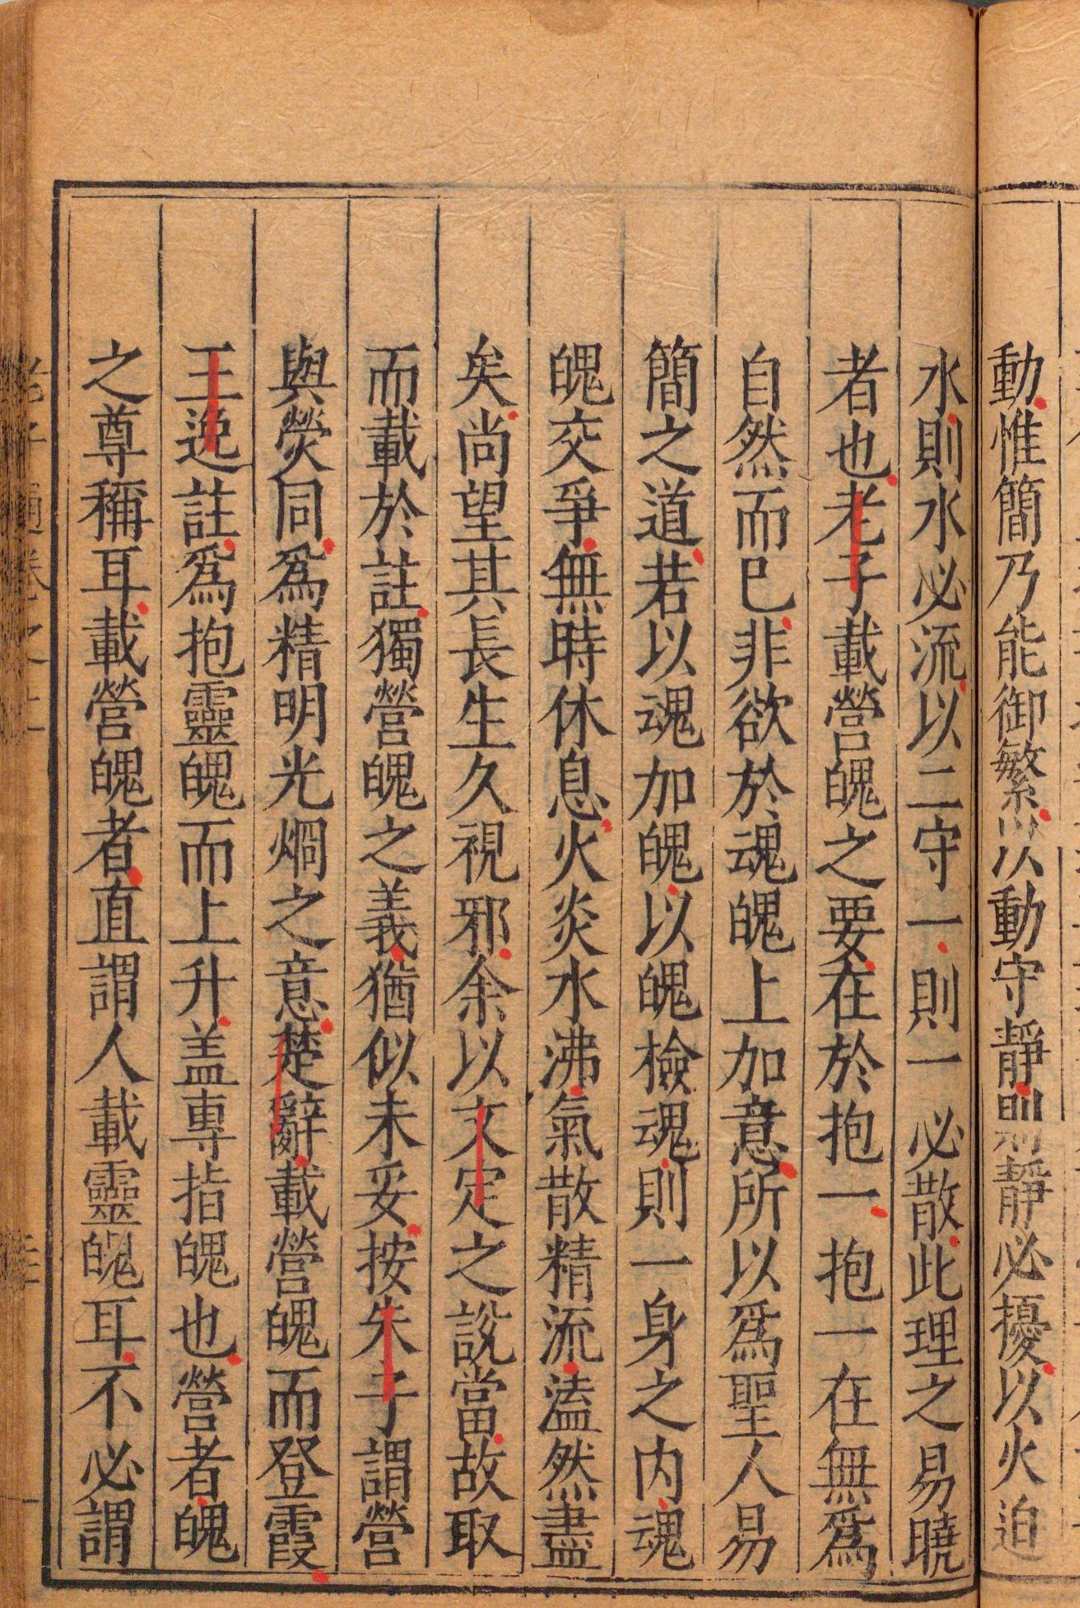 動惟簡乃能御繁以動守靜則靜必擾以火迫
水則水必流以二守一則一必散此理之易曉
者也老子載營魄之要在於抱一抱一在無爲
自然而已非欲於魂魄上加意所以爲聖人易
簡之道若以魂加魄以魄檢魂則一身之内魂
魄交爭無時休息火炎水沸氣散精流溘然盡
矣尚望其長生久視邪余以文定之說當故取
而載於註獨營魄之義猶似未妥按朱子謂營
與熒同爲精明光烱之意楚辭載營魄而登霞
王逸註爲抱靈魄而上升盖專指魄也營者魄
之尊稱耳載營魄者直謂人載靈魄耳不必謂